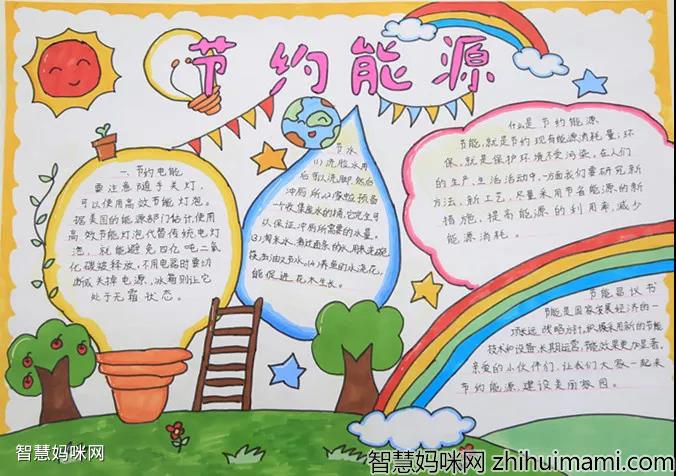 节约能源
一.节约电能
要注意随手关灯,
可以使用高效节能灯泡。
据美国的能源部门估计,使用
高效节能灯泡代替传统电灯
泡,就能避免四亿吨二氧
化碳被释放,不用电器时要切
断或关掉电源,冰箱别让它
处于无霜状态。
节水
(1)洗脸水用
后可以洗脚,然后
冲厕所.(2)家里预备
一个收集废水的桶,它完全可
以保证冲厕所需要的水量。
(3)淘米水、煮过面条的水,用来洗碗
筷去油又节水.(4)养鱼的水浇花,
能促进花木生长。
什么是节约能源
节能,就是节约现有能源消耗量,环
保,就是保护环境不受污染。在人们
的生产、生活活动中,一方面我们要研究新
方法、新工艺,尽量采用节省能源的新
措施,提高能源的利用率,减少
能源消耗。
节能倡议书
节能是国家发展经济的一
项长远战略方针,积极采用新的节能
技术和设备,长期运营,节能效果更加显著。
亲爱的小伙伴们,让我们大家一起来
节约能源,建设美丽校园。
智慧妈咪网
智慧妈咪网 zhihuimami.com